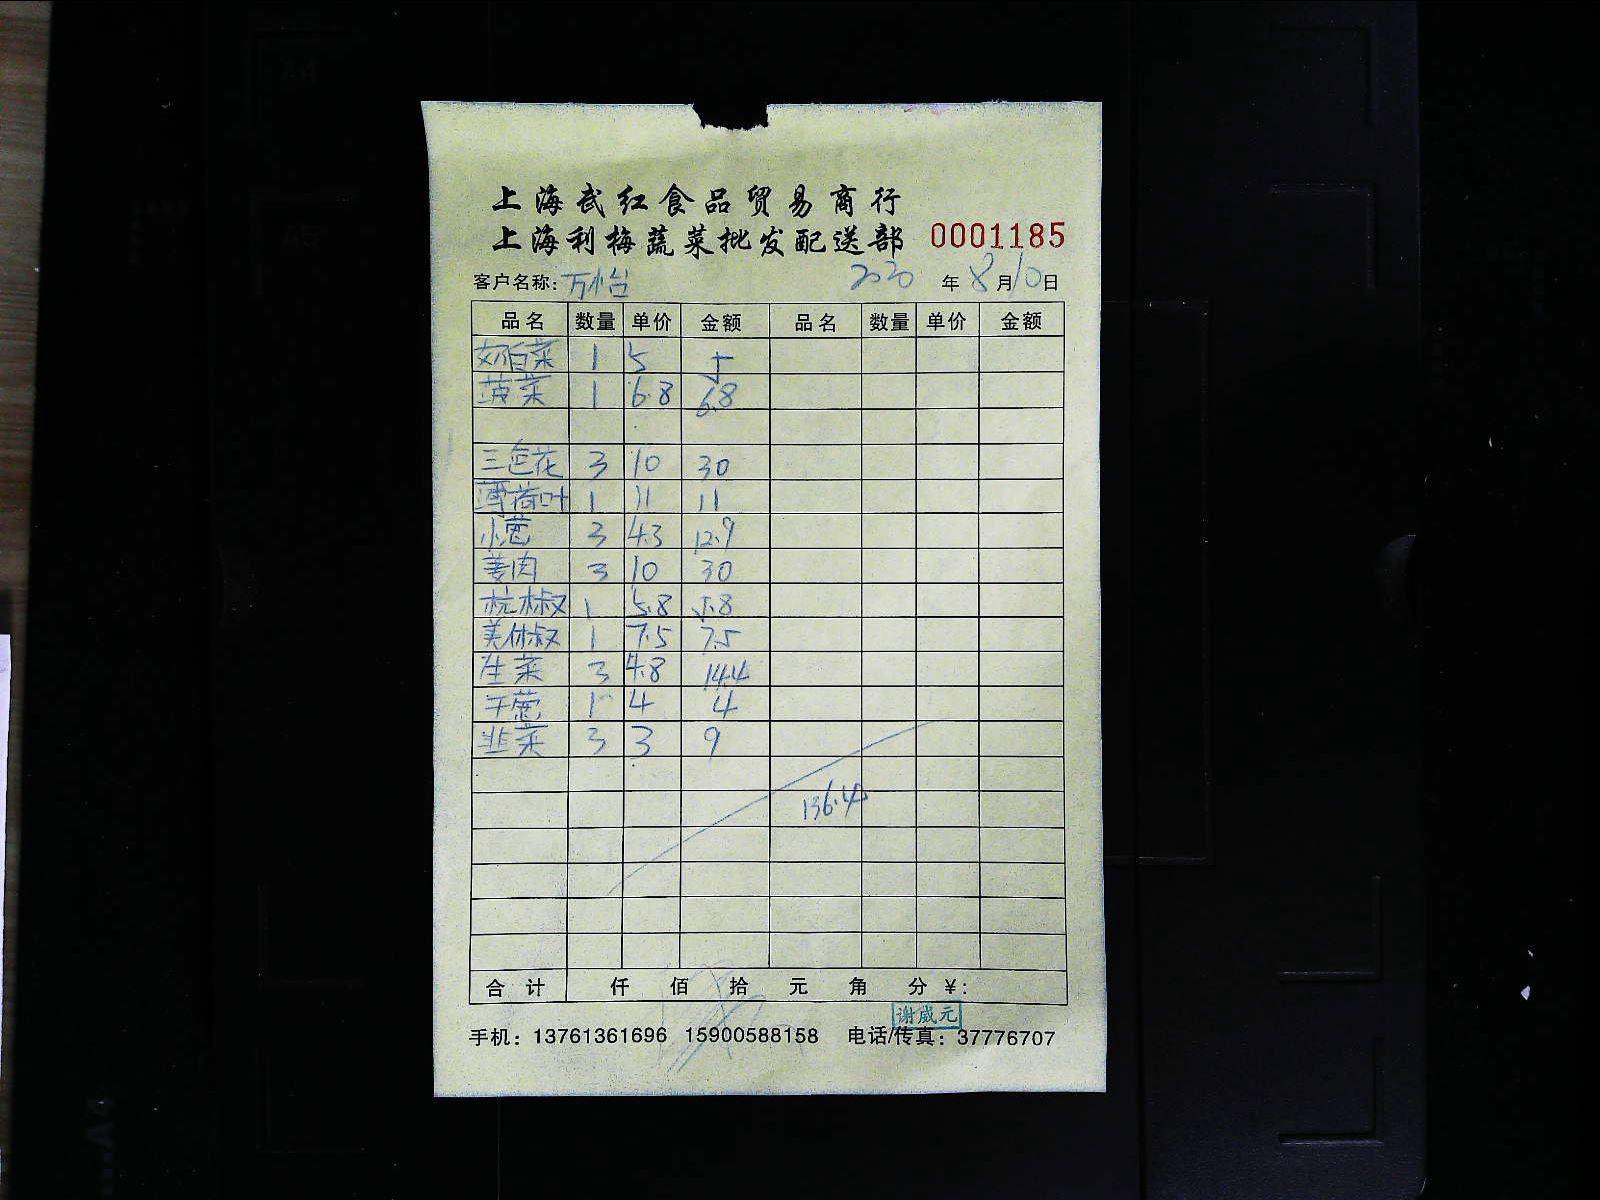 上海武红食品贸易商行
上海利梅蔬菜批发配送部 0001185
客户名称: 万怡 2020 年 8 月 10 日
品名 数量 单价 金额 品名 数量 单价 金额
奶白菜 1 5 5
菠菜 1 6.8 6.8
三色花 3 10 30
薄荷叶 1 11 11
小葱 3 4.3 12.9
姜肉 3 10 30
杭椒 1 5.8 5.8
美休椒 1 7.5 7.5
生菜 3 4.8 14.4
干葱 1 4 4
韭菜 3 3 9
136.4
合计 仟 佰 拾 元 角 分 ¥:
谢威元
手机: 13761361696 15900588158 电话/传真: 37776707